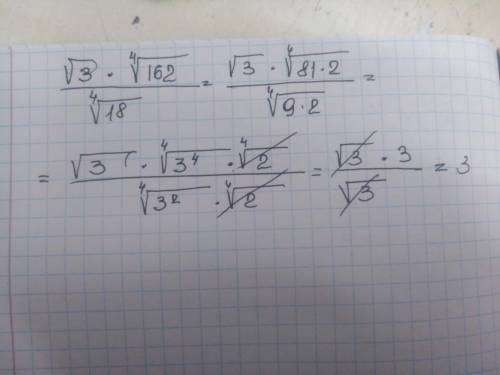 √3 · ⁴√162 / ⁴√18 = √3 · ⁴√81·2 / ⁴√9·2 =
= √3 · ⁴√3⁴ · ⁴√2 / ⁴√3² · ⁴√2 = √3 · 3 / √3 = 3